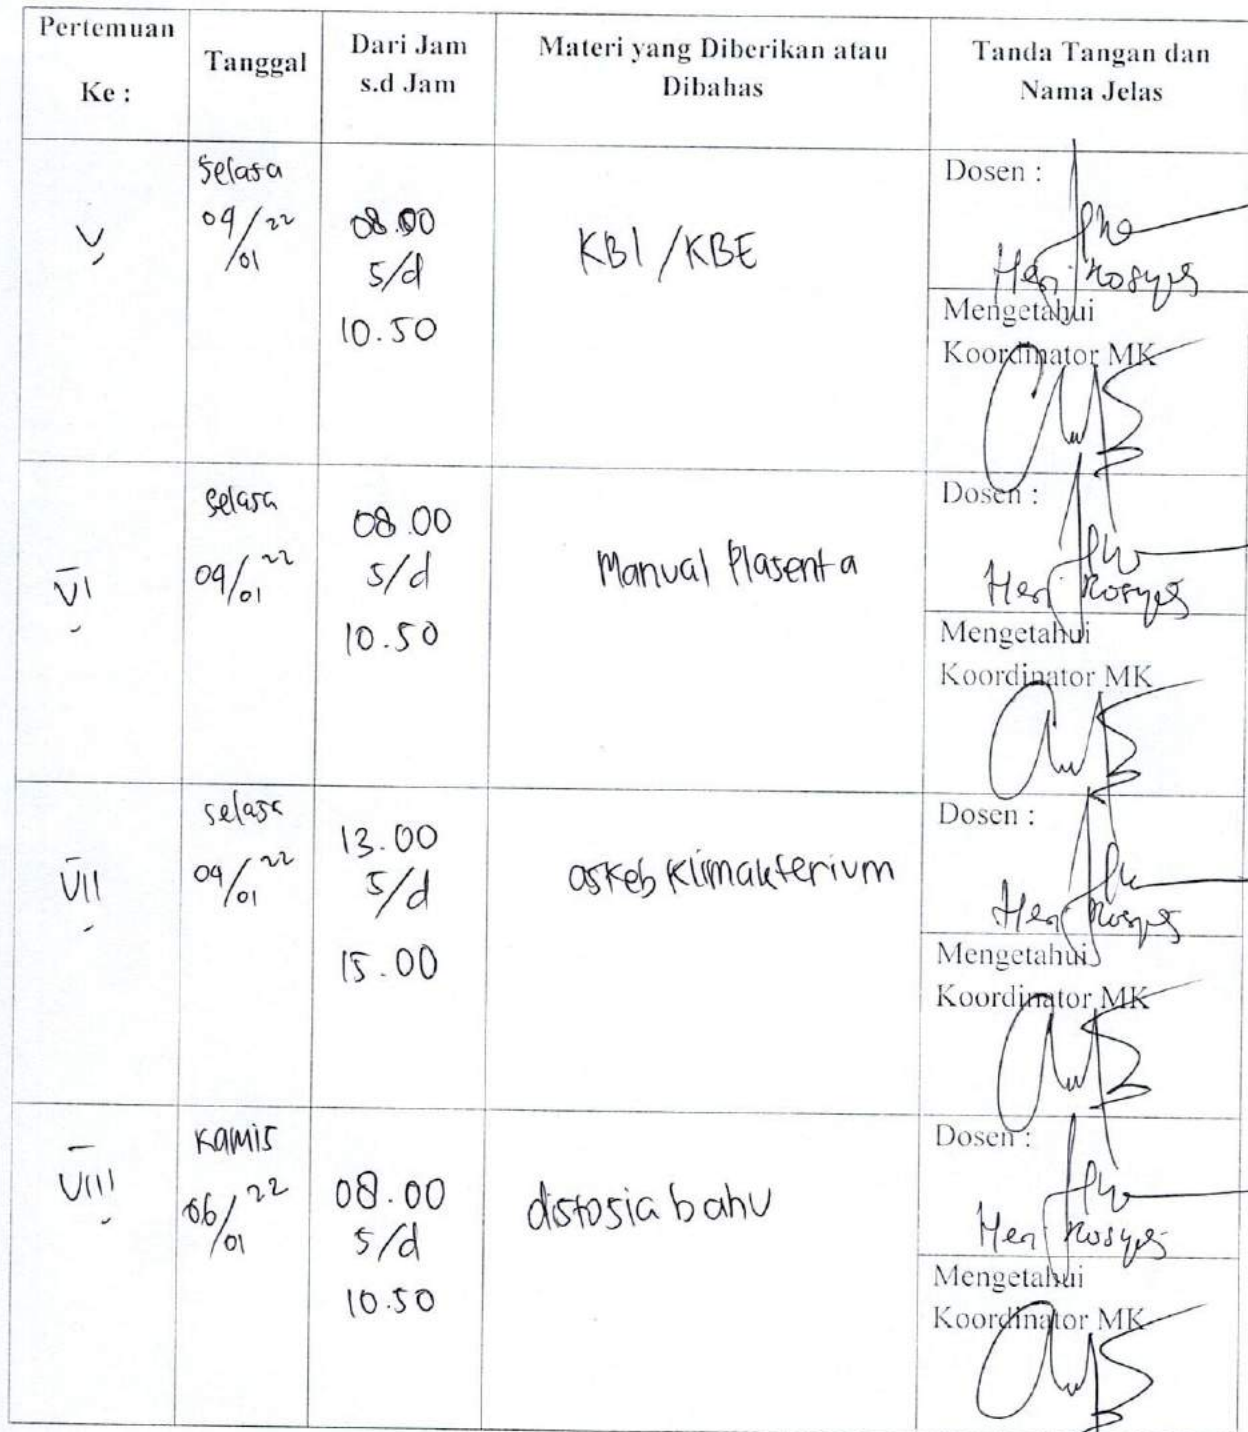 Pertemuan
Ke :
Tanggal
Dari Jam
s.d Jam
Materi yang Diberikan atau
Dibahas
Tanda Tangan dan
Nama Jelas
V
Selasa
04/01 22
08.00
s/d
10.50
KBI / KBE
Dosen :
Heri Rosyes
Mengetahui
Koordinator MK
VI
Selasa
04/01 22
08.00
s/d
10.50
Manual Plasenta
Dosen :
Heri Rosyes
Mengetahui
Koordinator MK
VII
selasa
04/01 22
13.00
s/d
15.00
askeb klimakterium
Dosen :
Heri Rosyes
Mengetahui
Koordinator MK
VIII
Kamis
06/01 22
08.00
s/d
10.50
distosia bahu
Dosen :
Heri Rosyes
Mengetahui
Koordinator MK